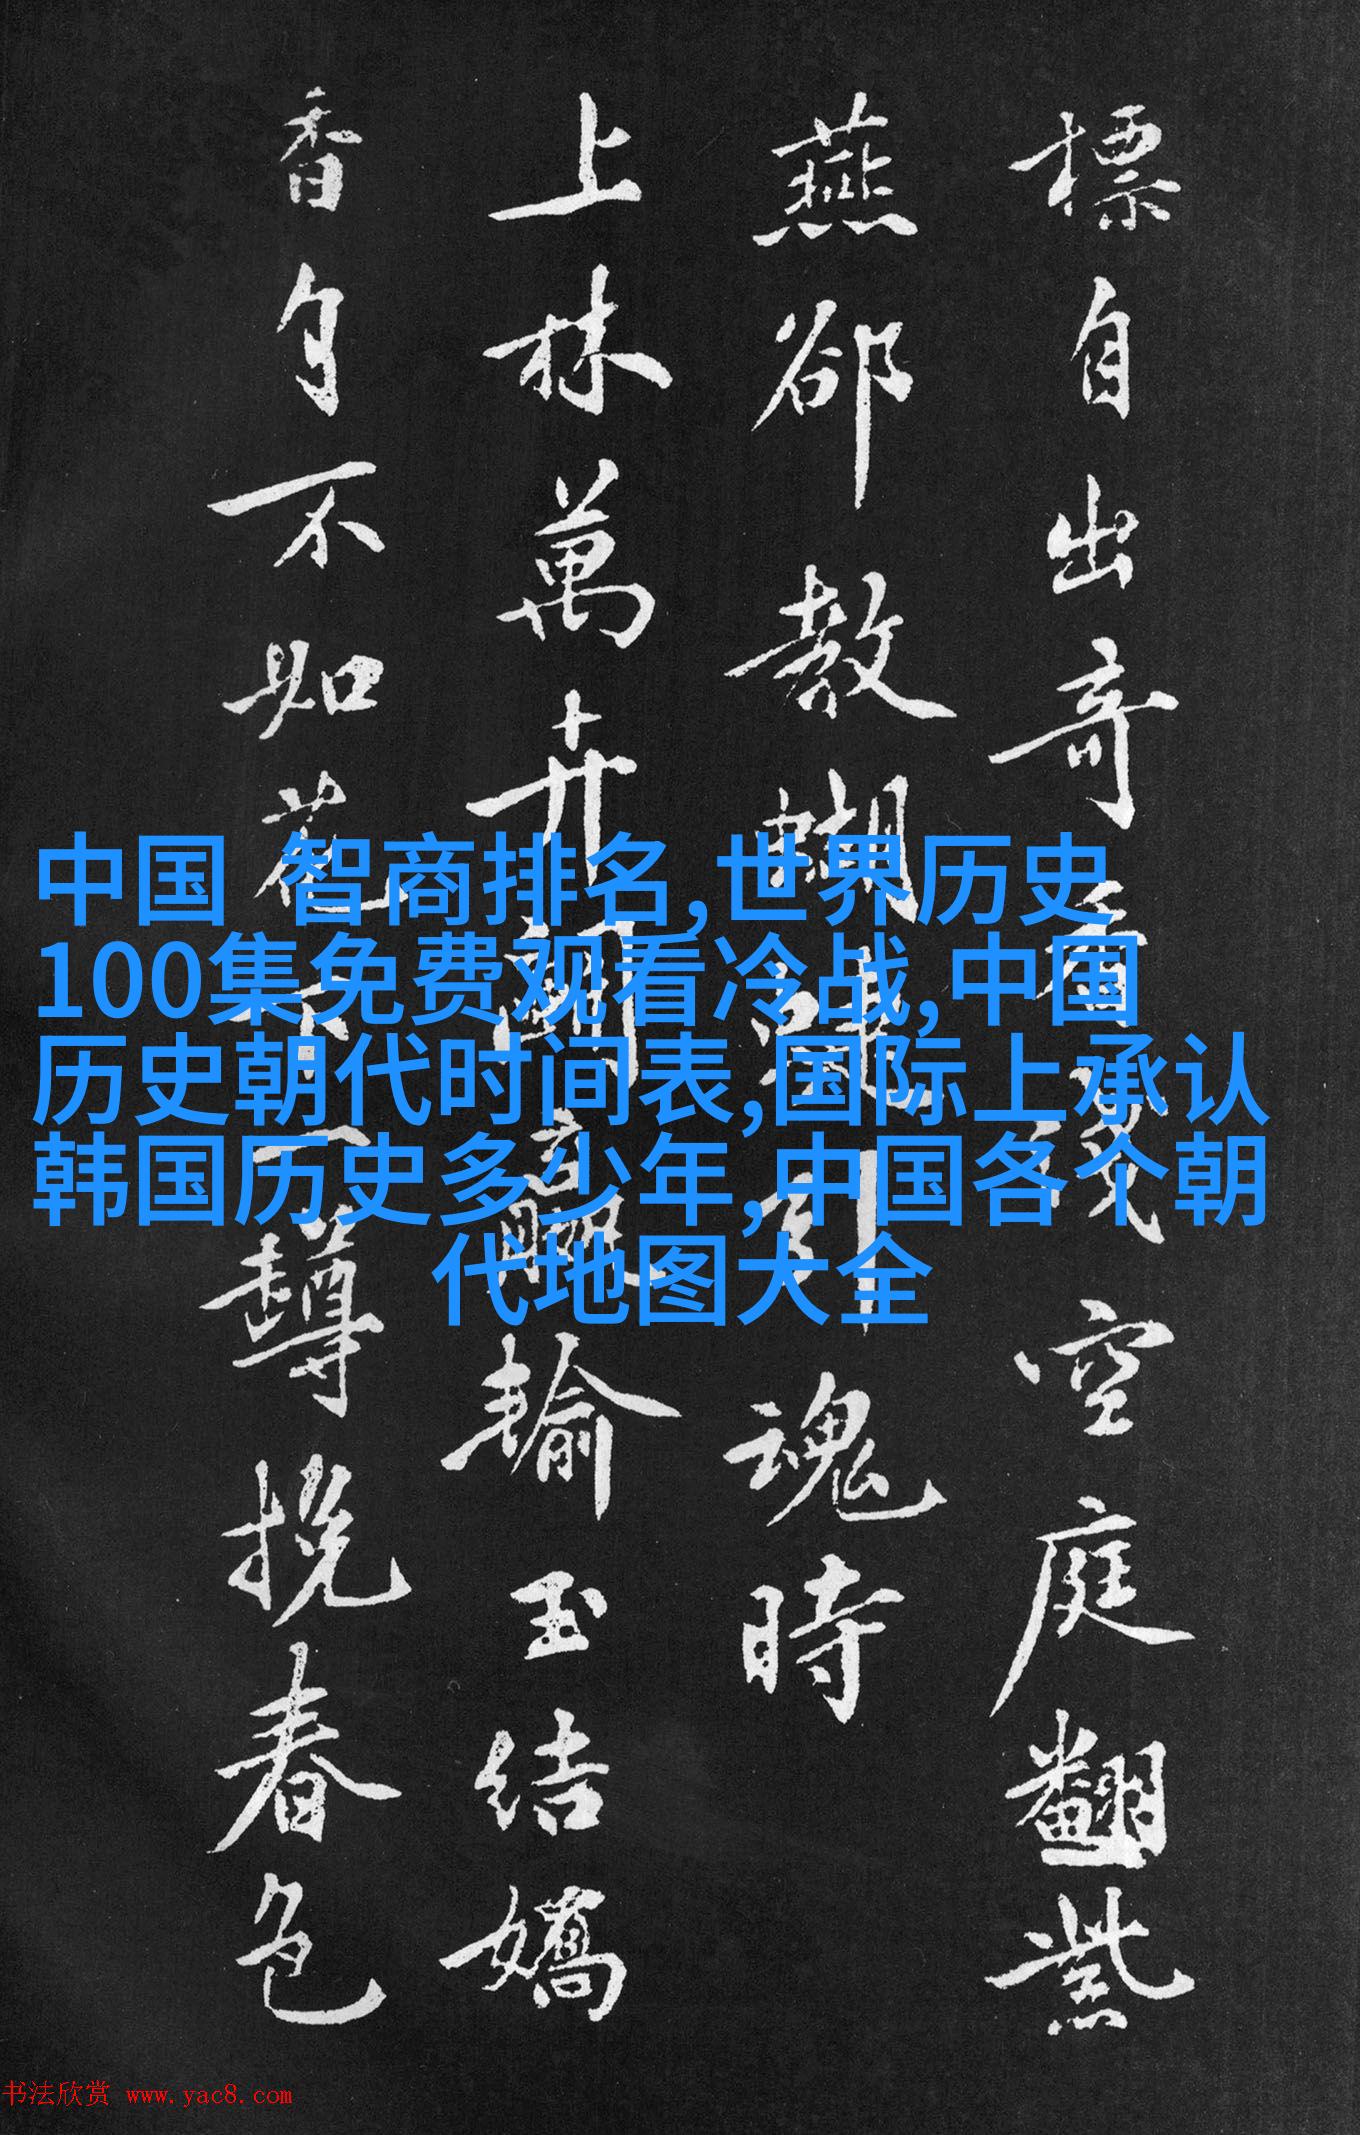 標自出奇 空庭翻紫
燕卻教蝴蝶引魂時
上林萬卉鬪贏輸玉結嬌
香自不如花下一罇挽春色
中国 智商排名,世界历史
100集免费观看冷战,中国
历史朝代时间表,国际上承认
韩国历史多少年,中国各个朝
代地图大全
书法欣赏 www.yac8.com